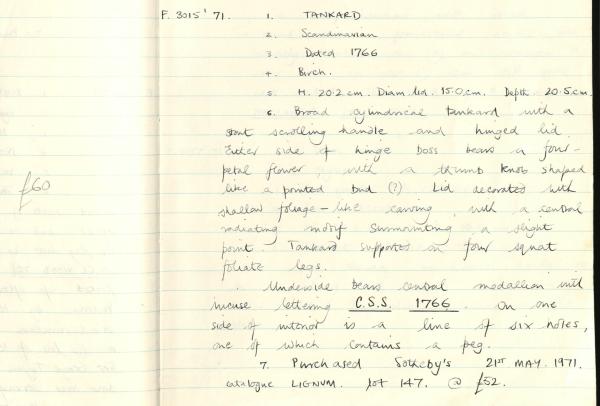 F. 3015' 71. 1. TANKARD
2. Scandinavian
3. Dated 1766
4. Birch.
5. H. 20.2 cm. Diam. lid. 15.0.cm. Depth 20.5 cm.
6. Broad cylindrical tankard with a
stout scrolling handle and hinged lid.
Either side of hinge boss bears a four-
petal flower, with a thumb knob shaped
like a pointed bud (?) Lid decorated with
£60
shallow foliage-like carving, with a central
radiating motif surmounting a slight
point. Tankard supported on four squat
foliate legs.
Underside bears central medallion with
incuse lettering C.S.S. 1766. On one
side of interior is a line of six holes,
one of which contains a peg.
7. Purchased Sotheby's 21ST MAY. 1971.
catalogue LIGNUM. lot 147. @ £52.